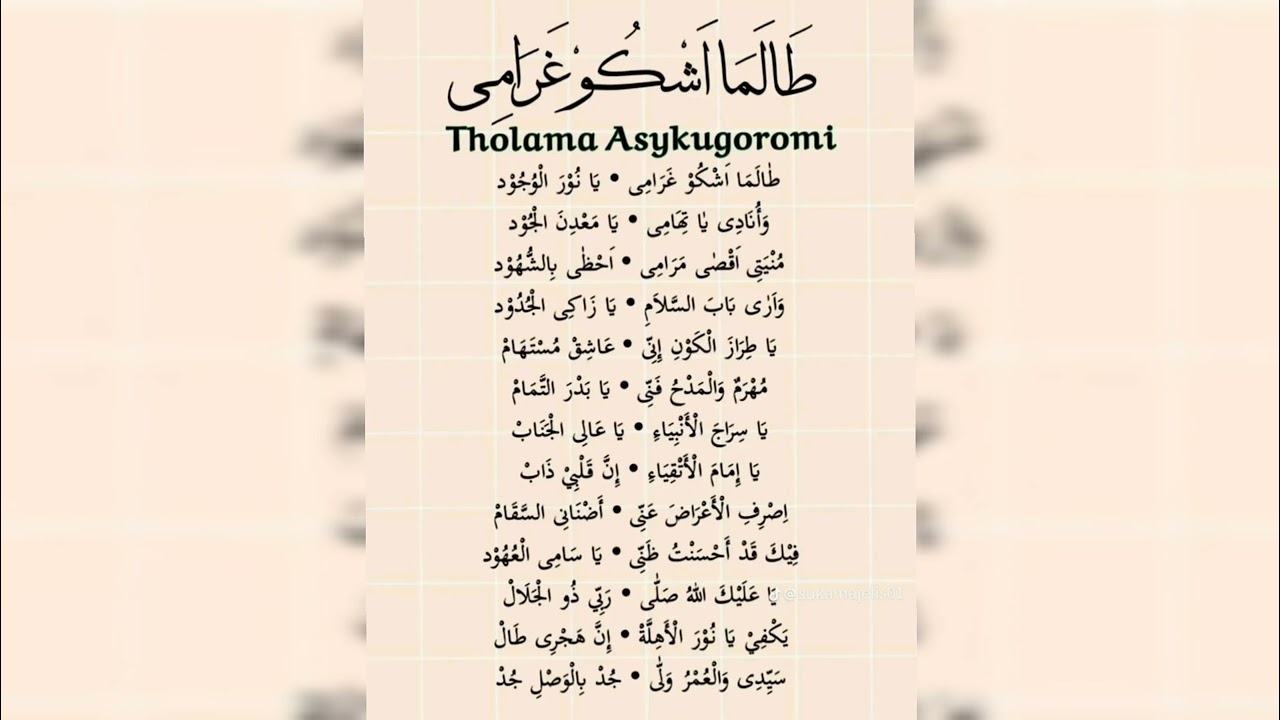 طَالَمَا اَشْكُوْ غَرَامِى
Tholama Asykugoromi
طٰالَمَا اَشْكُوْ غَرَامِى • يَا نُوْرَ الْوُجُوْد
وَأُنَادِى يٰا تِهَامِى • يَا مَعْدِنَ الْجُوْد
مُنْيَتِى اَقْصٰى مَرَامِى • اَحْظٰى بِالشُّهُوْد
وَاَرٰى بَابَ السَّلاَمِ • يَا زَاكِى الْجُدُوْد
يَا طِرَازَ الْكَوْنِ إِنِّى • عَاشِقْ مُسْتَهَامْ
مُهْرَمٌ وَالْمَدْحُ فَنِّى • يَا بَدْرَ التَّمَامْ
يَا سِرَاجَ الْأَنْبِيَاءِ • يَا عَالِى الْجَنَابْ
يَا إِمَامَ الْأَتْقِيَاءِ • إِنَّ قَلْبِيْ ذَابْ
اِصْرِفِ الْأَعْرَاضَ عَنِّى • أَضْنَانِى السَّقَامْ
فِيْكَ قَدْ أَحْسَنْتُ ظَنِّى • يَا سَامِى الْعُهُوْد
يَا عَلَيْكَ اللهُ صَلّٰى • رَبِّي ذُو الْجَلَالْ
@sukamajelis01
يَكْفِيْ يَا نُوْرَ الْأَهِلَّةْ • إِنَّ هَجْرِى طَالْ
سَيِّدِى وَالْعُمْرُ وَلّٰى • جُدْ بِالْوَصْلِ جُدْ